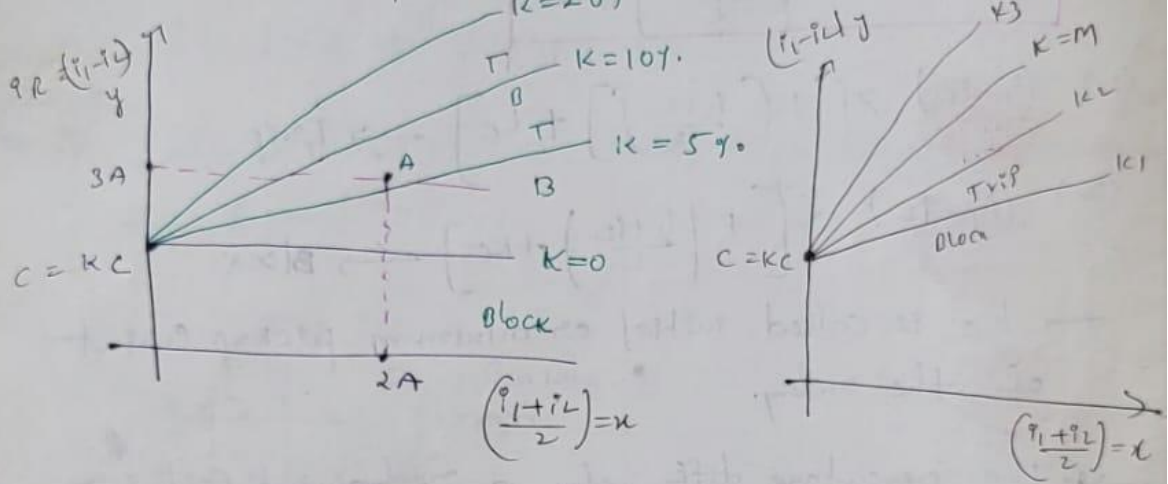 K=20%
iR = (i1-i2)
y
T
K=10%.
B
T
K = 5%.
3A
A
B
C = KC
K=0
Block
2A
(i1+i2 / 2) = x
(i1-i2) y
K3
K=M
K2
K1
Trip
Block
C = KC
(i1+i2 / 2) = x